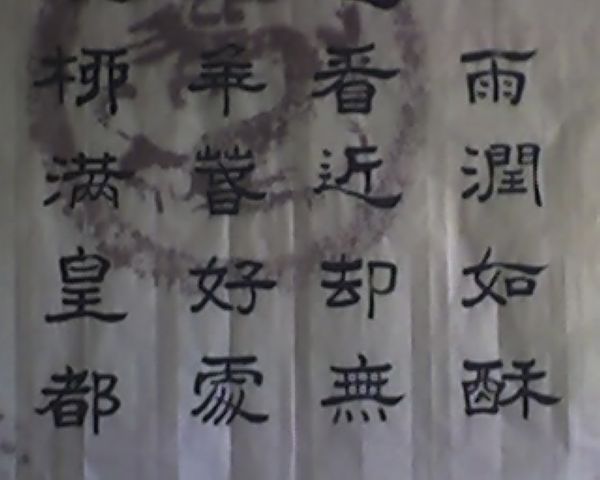 雨潤如酥
看近却無
年春好處
柳滿皇都